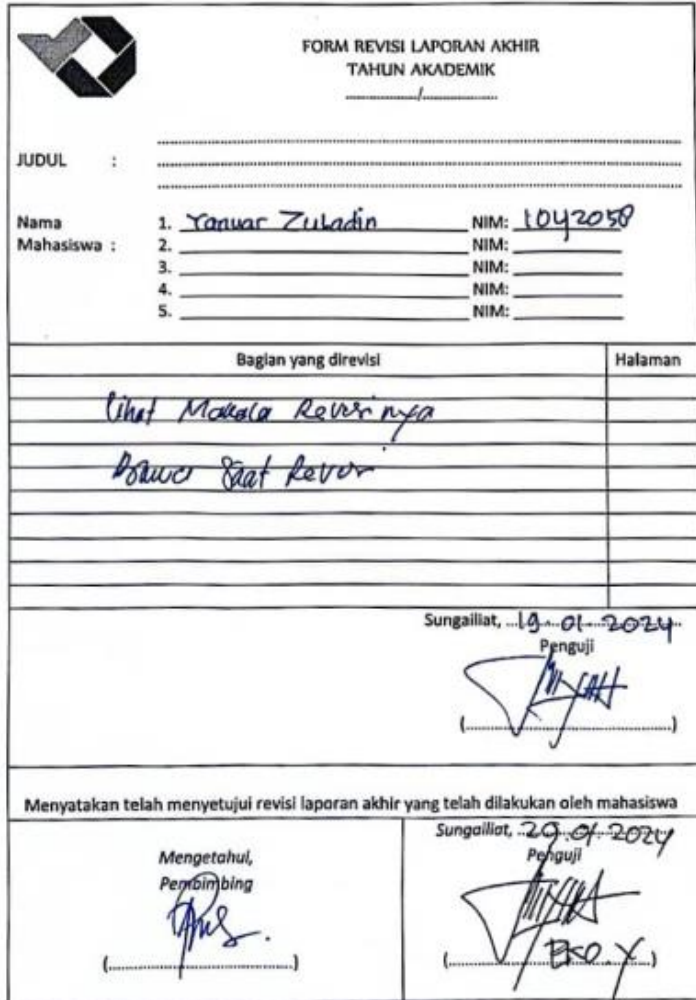 FORM REVISI LAPORAN AKHIR
TAHUN AKADEMIK
................/................
JUDUL :
Nama Mahasiswa :
1. Yanuar Zuladin NIM: 1042058
2. NIM:
3. NIM:
4. NIM:
5. NIM:
Bagian yang direvisi Halaman
Lihat Makala Revisinya
Saat Revisi
Sungailiat, 19-01-2024
Penguji
(................)
Menyatakan telah menyetujui revisi laporan akhir yang telah dilakukan oleh mahasiswa
Mengetahui,
Pembimbing
(................)
Sungailiat, 29-01-2024
Penguji
EKO.Y
(................)